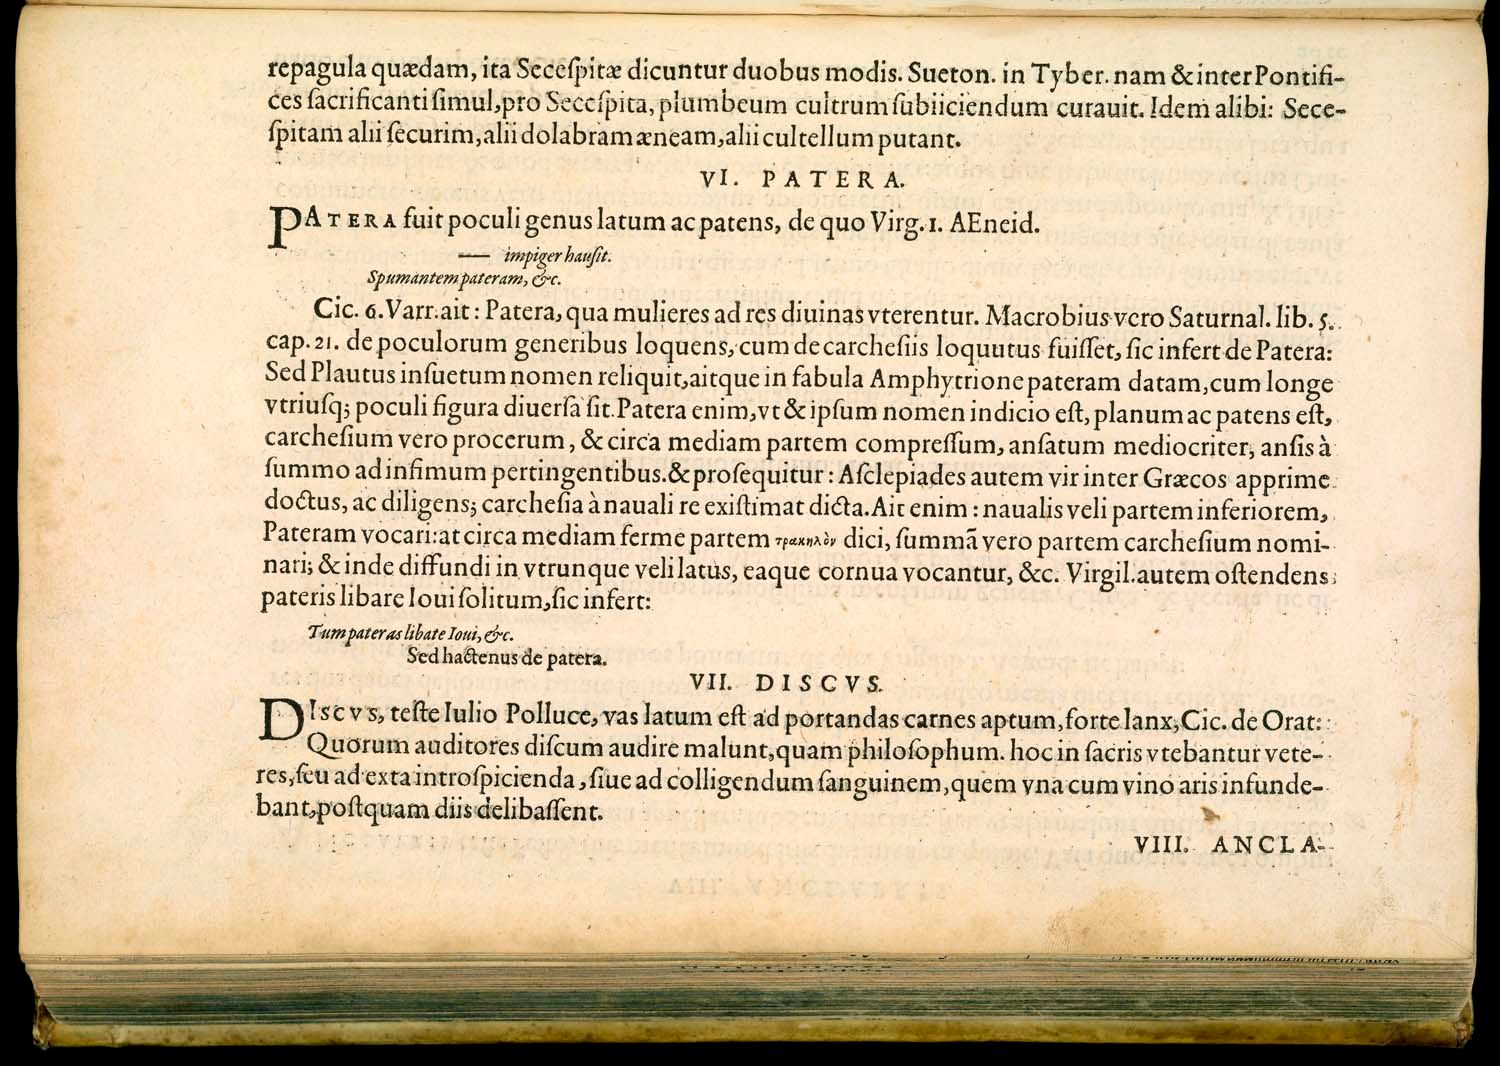 repagula quædam, ita Seceſpitæ dicuntur duobus modis. Sueton. in Tyber. nam & inter Pontifi-
ces ſacrificanti ſimul, pro Seceſpita, plumbeum cultrum ſubiiciendum curauit. Idem alibi: Sece-
ſpitam alii ſecurim, alii dolabram æneam, alii cultellum putant.
VI. PATERA.
PATERA fuit poculi genus latum ac patens, de quo Virg. 1. AEneid.
— impiger hauſit.
Spumantem pateram, &c.
Cic. 6. Varr. ait: Patera, qua mulieres ad res diuinas vterentur. Macrobius vero Saturnal. lib. 5.
cap. 21. de poculorum generibus loquens, cum de carcheſiis loquutus fuiſſet, ſic infert de Patera:
Sed Plautus inſuetum nomen reliquit, aitque in fabula Amphytrione pateram datam, cum longe
vtriuſq; poculi figura diuerſa ſit. Patera enim, vt & ipſum nomen indicio eſt, planum ac patens eſt,
carcheſium vero procerum, & circa mediam partem compreſſum, anſatum mediocriter, anſis à
ſummo ad infimum pertingentibus. & proſequitur: Aſclepiades autem vir inter Græcos apprime
doctus, ac diligens; carcheſia à nauali re exiſtimat dicta. Ait enim: naualis veli partem inferiorem,
Pateram vocari: at circa mediam ferme partem τρακηλὸν dici, ſummã vero partem carcheſium nomi-
nari; & inde diffundi in vtrunque veli latus, eaque cornua vocantur, &c. Virgil. autem oſtendens
pateris libare Ioui ſolitum, ſic infert:
Tum pateras libate Ioui, &c.
Sed hactenus de patera.
VII. DISCVS.
DISCVS, teſte Iulio Polluce, vas latum eſt ad portandas carnes aptum, forte lanx, Cic. de Orat:
Quorum auditores diſcum audire malunt, quam philoſophum. hoc in ſacris vtebantur vete-
res, ſeu ad exta introſpicienda, ſiue ad colligendum ſanguinem, quem vna cum vino aris infunde-
bant, poſtquam diis delibaſſent.
VIII. ANCLA-